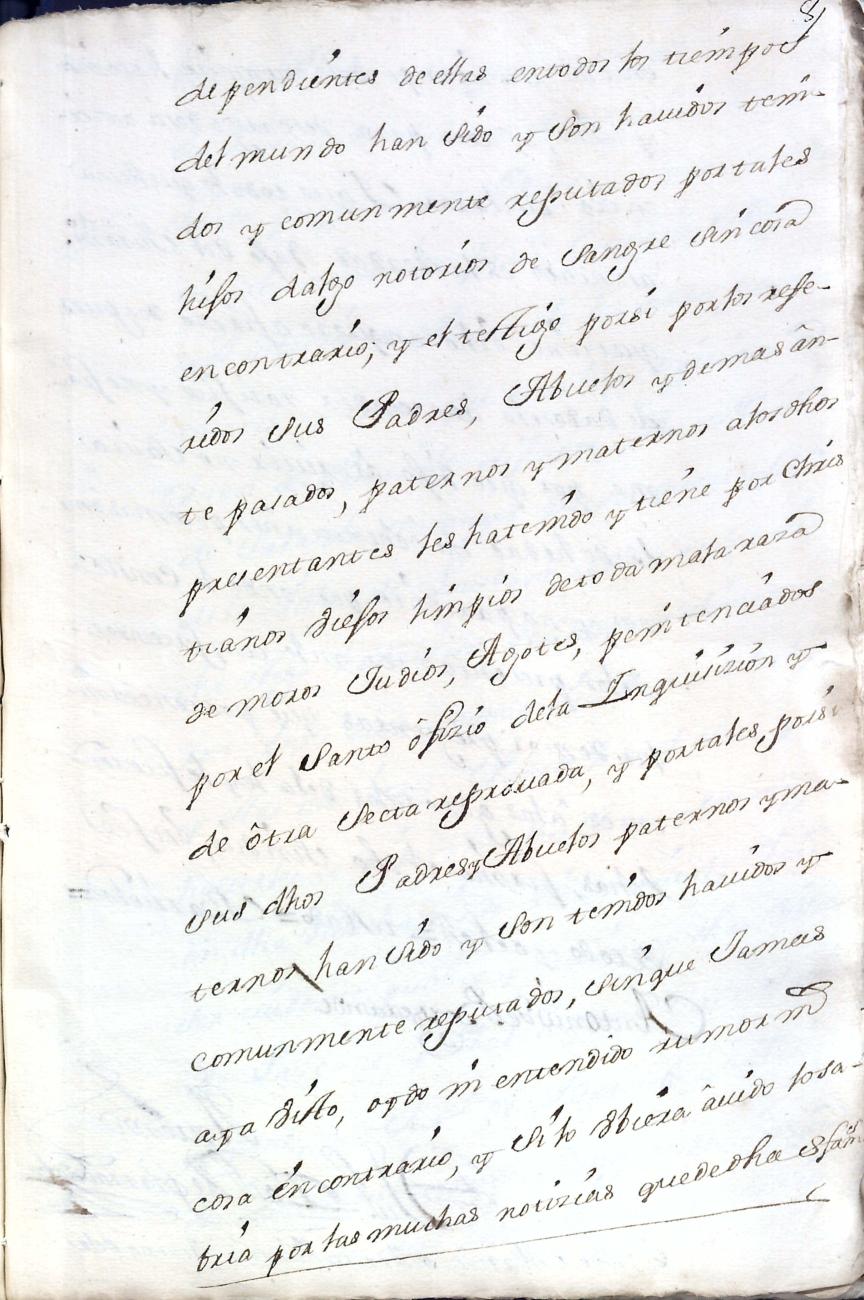 dependientes de ellas en todos los tiempos
del mundo han sido y son hauidos teni-
dos y comunmente reputados por tales
hijos dalgo notorios de sangre sin cosa
en contrario; y el testigo por si por los refe-
ridos sus Padres, Abuelos y demas ân-
tepasados, paternos y maternos a los dhos
presentantes les ha tenido y tiene por Chris
tianos viejos limpios de toda mala raza
de moros Judios, Agotes, penitenciados
por el Santo ôfizio dela Inquisizion y
de ôtra secta reprouada, y por tales, por si
sus dhos Padres y Abuelos paternos y ma-
ternos han sido y son tenidos hauidos y
comunmente reputados, sin que Jamas
aya visto, oydo ni entendido rumor ni
cosa en contrario, y si lo vbiera âuido lo sa-
bria por las muchas notizias que de dha